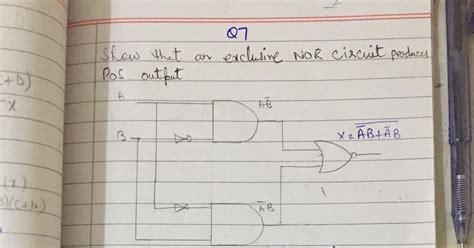 Q7
Show that an exclusive NOR circuit produces
POS output
A
AB̅
B
X = \overline{A̅B + A̅B}
A̅B
C+D)
X
(X)
B)(C+D)